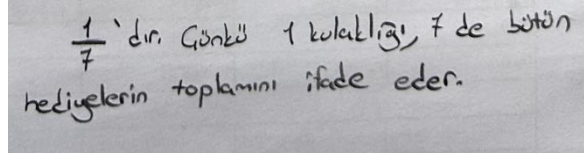 1/7 'dır. Çünkü 1 kulaklığı, 7 de bütün
hediyelerin toplamını ifade eder.